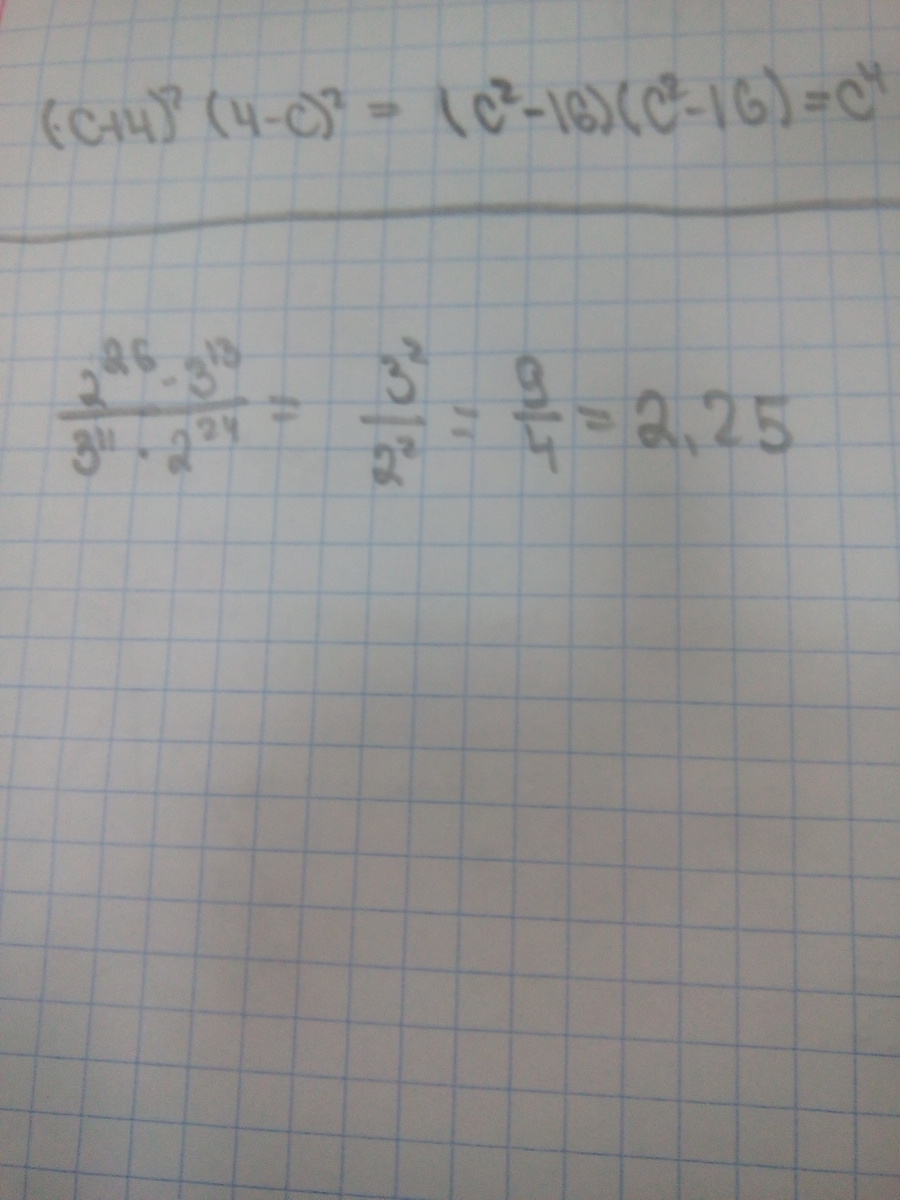 (-c+4)² (4-c)² = (c²-16)(c²-16)=c⁴
2²⁶ · 3¹³ / 3¹¹ · 2²⁴ = 3² / 2² = 9/4 = 2,25